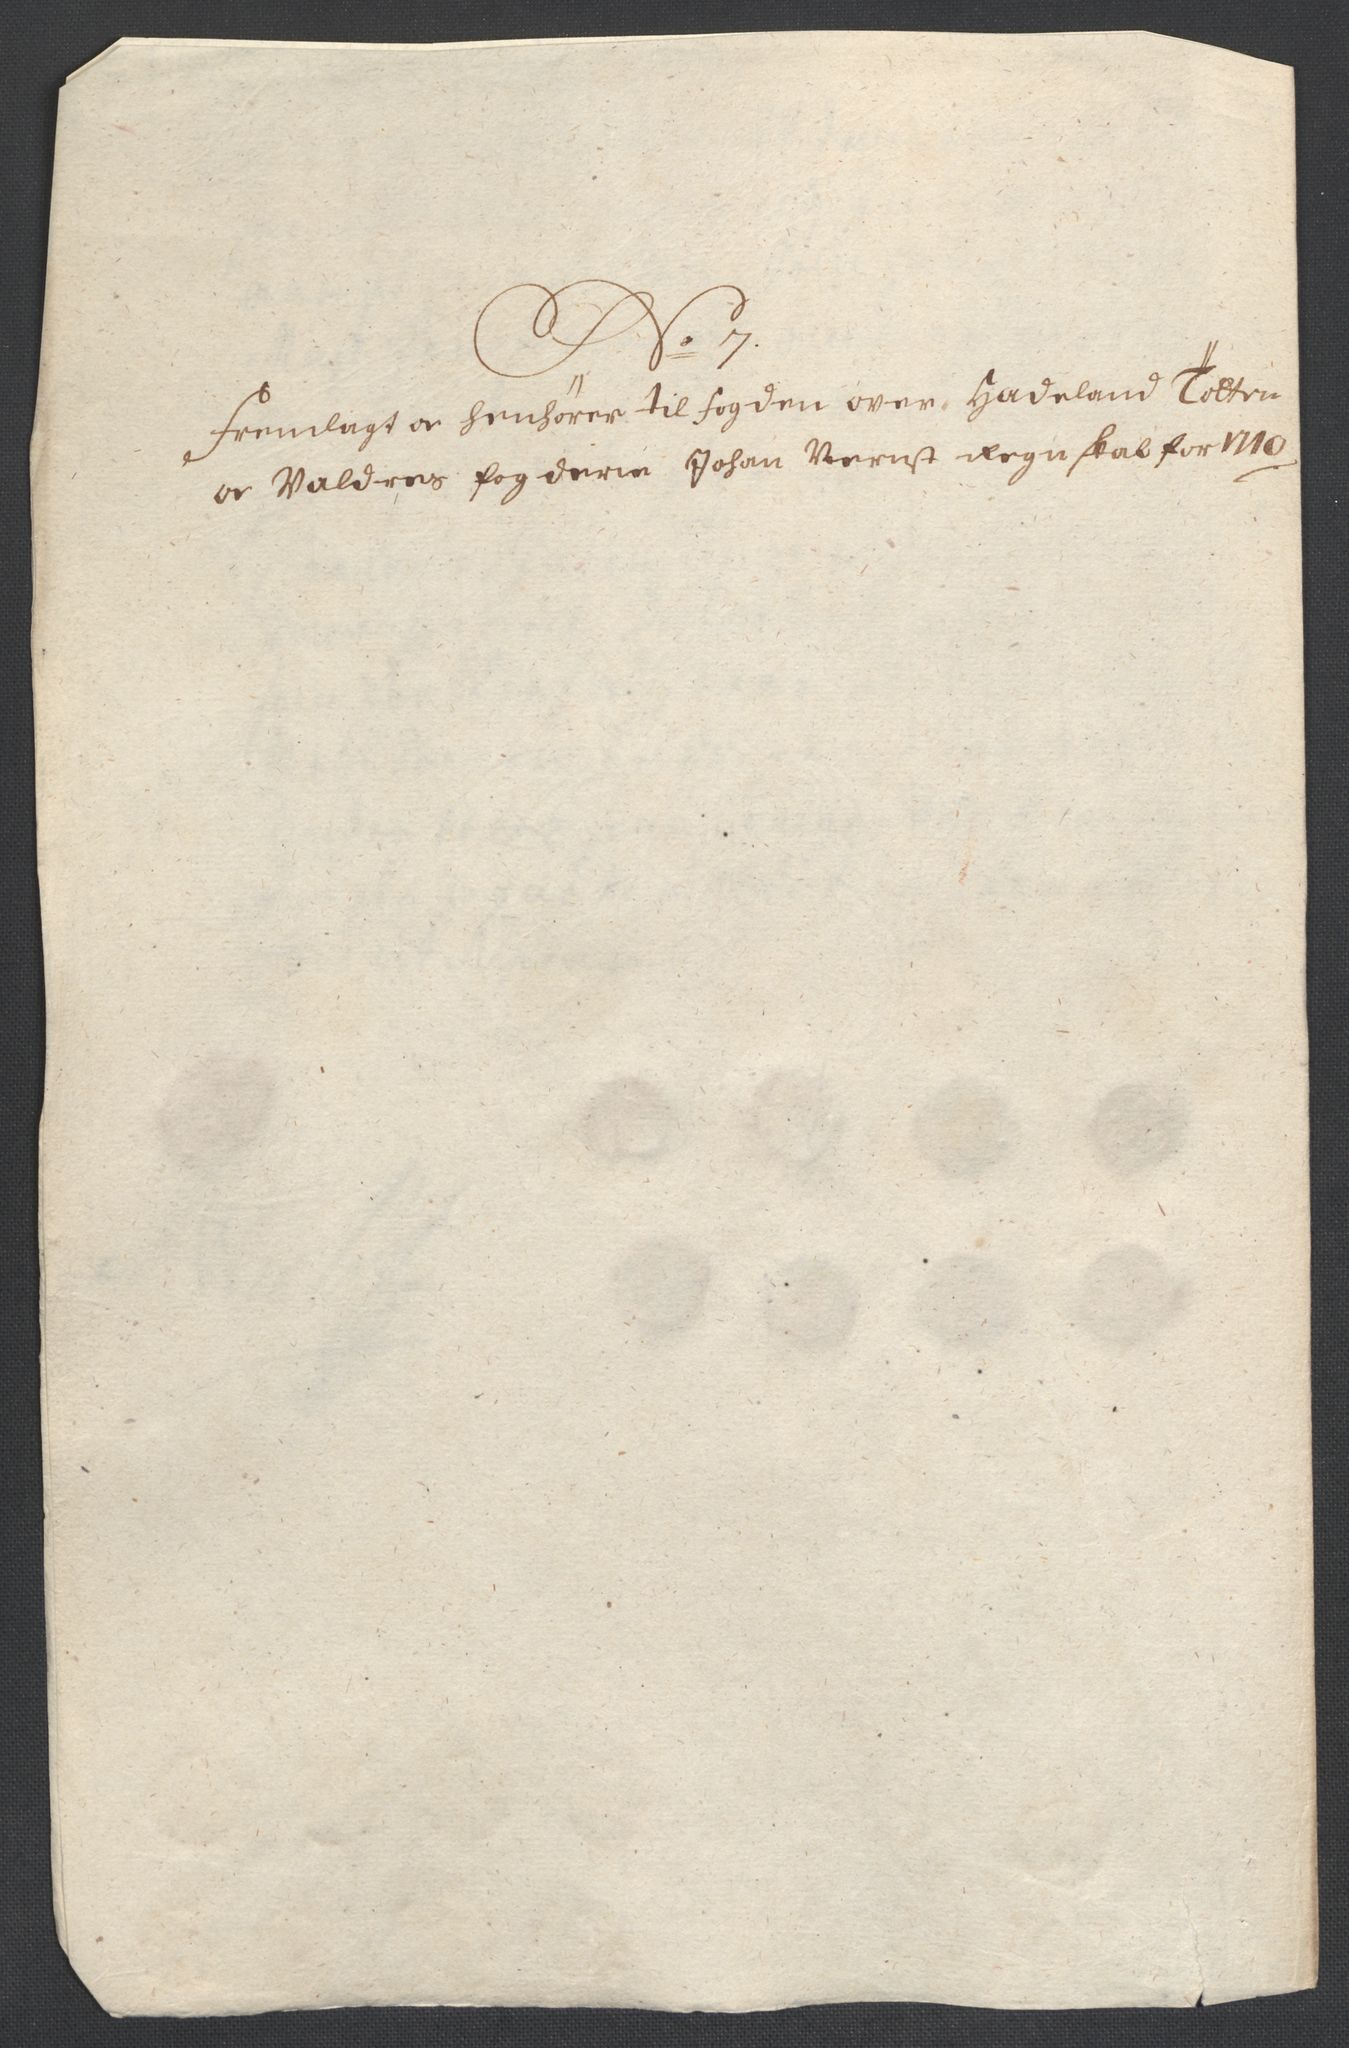 No 7.
Fremlagt oc henhörer til fogden over Hadeland Totten
oc Valdres fogderie Johan Vernst Regnskab for 1710